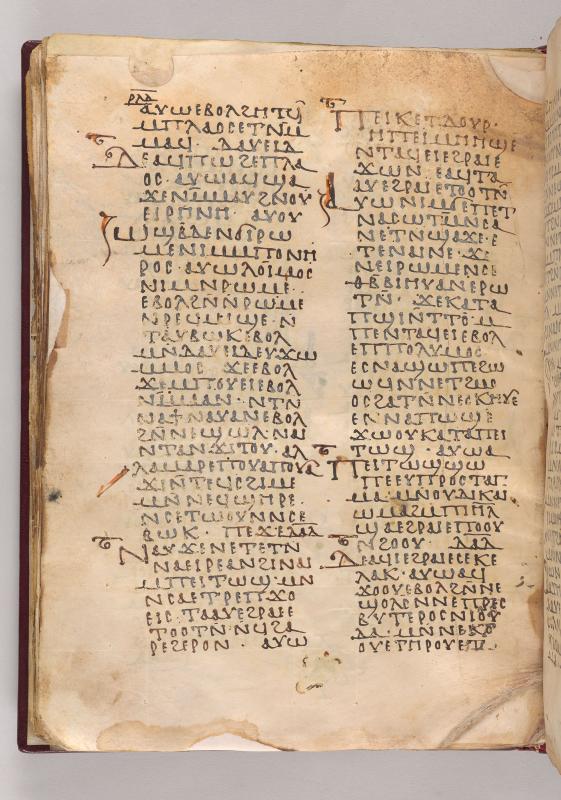 ⲣⲗⲇ
ⲁⲩⲱⲉⲃⲟⲗϩⲏⲧϥ
ⲙⲡⲗⲁⲟⲥⲉⲧⲛⲙ̄
ⲙⲁϥ· ⲇⲁⲩⲉⲓⲇ
ⲇⲉⲁϥⲡⲱϩⲉⲡⲗⲁ
ⲟⲥ· ⲁⲩⲱⲁϥϣⲁ
ϫⲉⲛⲙ̄ⲙⲁⲩϩⲛⲟⲩ
ⲉⲓⲣⲏⲛⲏ· ⲁⲩⲟⲩ
ⲱϣⲃⲇⲉⲛϭⲓⲣⲱ
ⲙⲉⲛⲓⲙⲙⲡⲟⲛⲏ
ⲣⲟⲥ· ⲁⲩⲱⲗⲟⲓⲙⲟⲥ
ⲛⲓⲙⲛⲣⲱⲙⲉ·
ⲉⲃⲟⲗϩⲛ̄ⲛⲣⲱⲙⲉ
ⲛⲣⲉϥⲙⲓϣⲉ· ⲛ̄
ⲧⲁⲩⲃⲱⲕⲉⲃⲟⲗ
ⲙⲛ̄ⲇⲁⲩⲉⲓⲇⲉⲩϫⲱ
ⲙⲙⲟⲥ· ϫⲉⲉⲃⲟⲗ
ϫⲉⲙⲡⲟⲩⲉⲓⲉⲃⲟⲗ
ⲛⲙ̄ⲙⲁⲛ· ⲛⲧⲛ̄
ⲛⲁϯⲛⲁⲩⲁⲛⲉⲃⲟⲗ
ϩⲛ̄ⲛⲉϣⲱⲗ· ⲛⲁⲓ
ⲛⲧⲁⲛϫⲓⲧⲟⲩ· ⲁⲗ
ⲗⲁⲙⲁⲣⲉⲡⲟⲩⲁⲡⲟⲩⲁ
ϫⲓⲛ̄ⲧⲉϥⲥϩⲓⲙⲉ
ⲙⲛ̄ⲛⲉϥϣⲏⲣⲉ·
ⲛⲥⲉⲧⲱⲟⲩⲛⲛⲥⲉ
ⲃⲱⲕ· ⲡⲉϫⲉⲇⲁⲇ
ⲛⲁⲩϫⲉⲛⲉⲧⲉⲧⲛ
ⲛⲁⲉⲓⲣⲉⲁⲛϩⲓⲛⲁⲓ
ⲙⲡⲉⲓⲧⲱϣ· ⲙⲛ
ⲛⲥⲁⲉⲧⲣⲉⲡϫⲟ
ⲉⲓⲥ· ⲧⲁⲁⲩⲉϩⲣⲁⲓⲉ
ⲧⲟⲟⲧⲛ̄· ⲛϥϩⲁ
ⲣⲉϩⲉⲣⲟⲛ· ⲁⲩⲱ
ⲡⲉⲓⲕⲉⲅⲇⲟⲩⲣ·
ⲏⲡⲉⲓⲙⲏⲏϣⲉ
ⲛⲧⲁϥⲉⲓⲉϩⲣⲁⲓⲉ
ϫⲱⲛ· ⲉⲁϥⲧⲁ
ⲁⲩⲉϩⲣⲁⲓⲉⲧⲟⲟⲧⲛ̄
ⲁⲩⲱⲛⲓⲙⲡⲉⲧ
ⲛⲁⲥⲱⲧⲙ̄ⲛⲥⲁ
ⲛⲉⲧⲛ̄ϣⲁϫⲉ· ⲉ
ⲧⲉⲛⲁⲓⲛⲉ· ϫⲉ
ⲛⲉⲓⲣⲱⲙⲉⲛⲥⲉ
ⲑⲃ̄ⲃⲓⲏⲩⲁⲛⲉⲣⲱ
ⲧⲛ̄· ϫⲉⲕⲁⲧⲁ
ⲡⲱϣⲛ̄ⲧⲧⲟ· ⲙ
ⲡⲉⲛⲧⲁϥⲉⲓⲉⲃⲟⲗ
ⲉⲡⲡⲟⲗⲩⲙⲟⲥ
ⲉⲥⲛⲁϣⲱⲡⲉϩⲱ
ⲱϥⲛ̄ⲛⲉⲧϩⲙⲟ
ⲟⲥϩⲁⲧⲛ̄ⲛⲉⲥⲕⲏⲩⲉ
ⲉⲩⲛⲁⲡⲱϣⲉ
ϫⲱⲟⲩⲕⲁⲧⲁⲡⲉⲓ
ⲧⲱϣ· ⲁⲩⲱⲁ
ⲡⲉⲓⲧⲱϣϣⲱ
ⲡⲉⲉⲩⲡⲣⲟⲥⲧⲁⲅ
ⲙⲁ· ⲙⲛⲟⲩⲇⲓⲕⲁⲓ
ⲱⲙⲁϩⲙⲡⲓⲏ̄ⲗ
ϣⲁⲉϩⲣⲁⲓⲉⲡⲟⲟⲩ
ⲛϩⲟⲟⲩ· ⲇⲁⲇ
ⲇⲉⲁϥⲉⲓⲉϩⲣⲁⲓⲉⲥⲉⲕⲉ
ⲗⲁⲕ· ⲁⲩⲱⲁϥ
ϫⲟⲟⲩⲉⲃⲟⲗϩⲛ̄ⲛⲉ
ϣⲱⲗⲛⲛⲉⲡⲣⲉⲥ
ⲃⲩⲧⲉⲣⲟⲥⲛⲓⲟⲩ
ⲇⲁ· ⲙⲛ̄ⲛⲉⲕⲟ
ⲟⲩⲉⲧϩⲓⲧⲟⲩⲱⲟⲩ